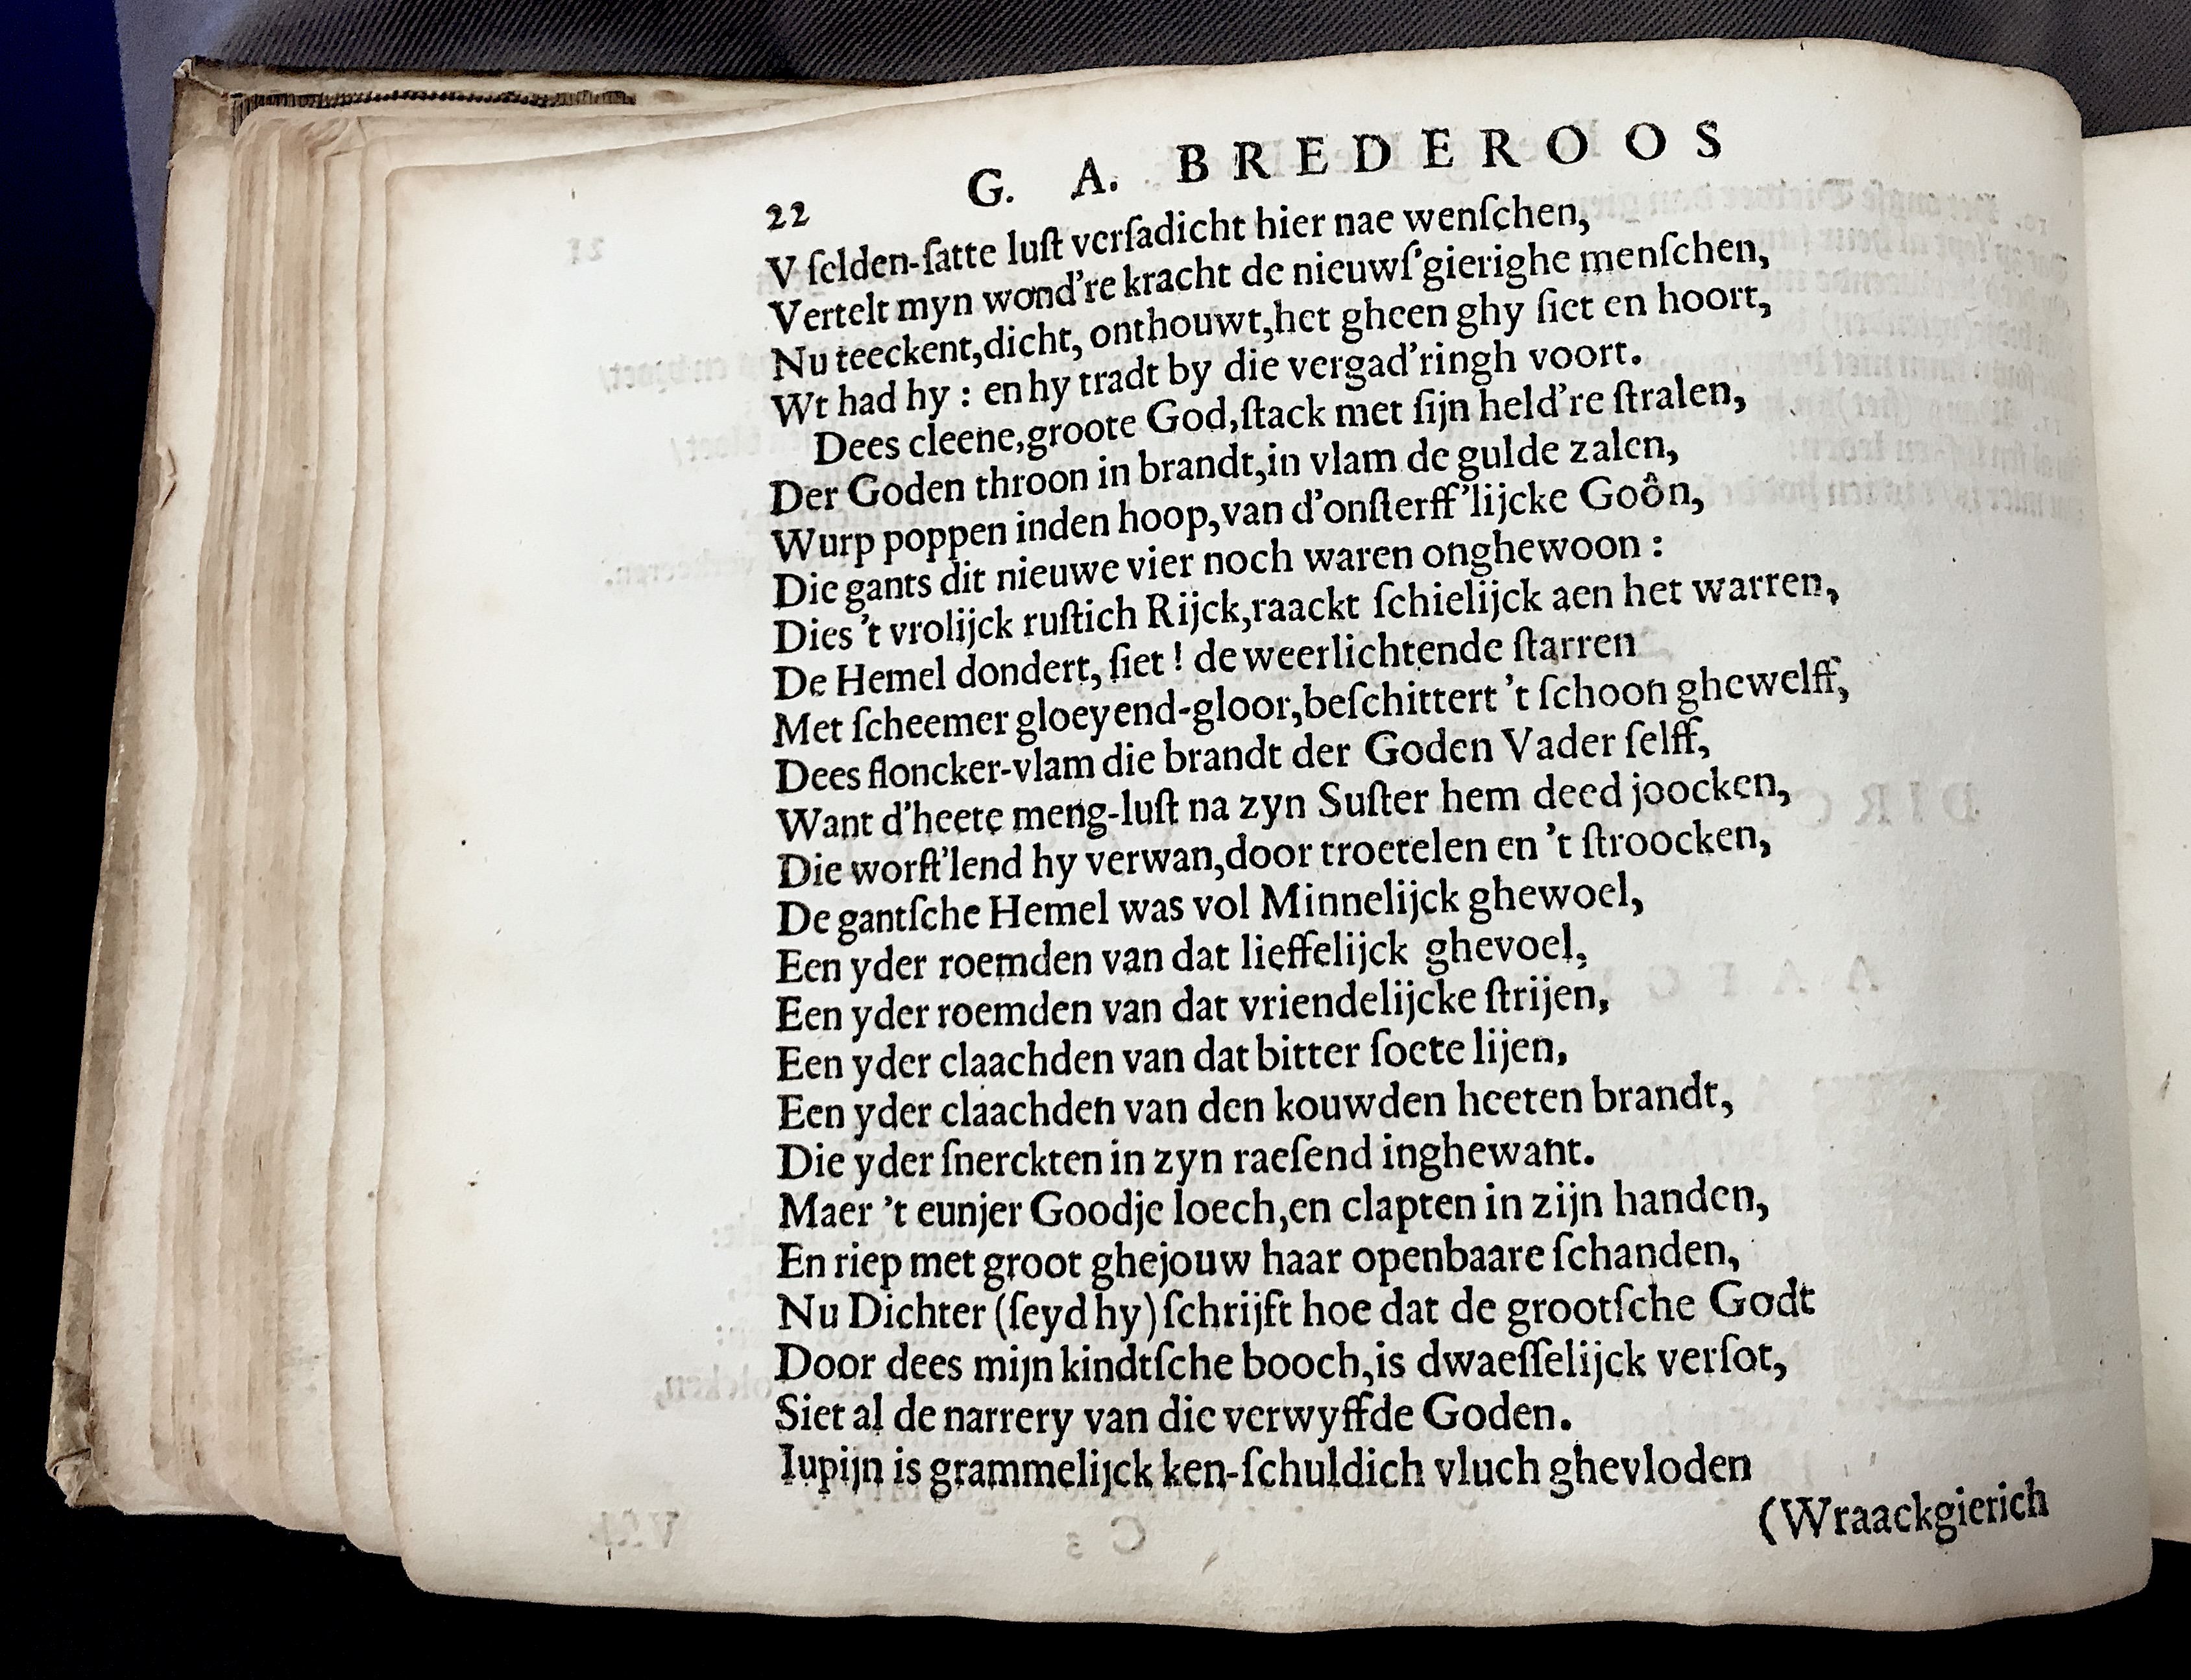 G. A. BREDEROOS
22
V ſelden-ſatte luſt verſadicht hier nae wenſchen,
Vertelt myn wond're kracht de nieuwſ'gierighe menſchen,
Nu teeckent,dicht, onthouwt,het gheen ghy ſiet en hoort,
Wt had hy : en hy tradt by die vergad'ringh voort.
Dees cleene,groote God,ſtack met ſijn held're ſtralen,
Der Goden throon in brandt,in vlam de gulde zalen,
Wurp poppen inden hoop,van d'onſterff'lijcke Goôn,
Die gants dit nieuwe vier noch waren onghewoon :
Dies 't vrolijck ruſtich Rijck,raackt ſchielijck aen het warren,
De Hemel dondert, ſiet ! de weerlichtende ſtarren
Met ſcheemer gloeyend-gloor,beſchittert 't ſchoon ghewelff,
Dees floncker-vlam die brandt der Goden Vader ſelff,
Want d'heete meng-luſt na zyn Suſter hem deed joocken,
Die worſt'lend hy verwan,door troetelen en 't ſtroocken,
De gantſche Hemel was vol Minnelijck ghewoel,
Een yder roemden van dat lieffelijck ghevoel,
Een yder roemden van dat vriendelijcke ſtrijen,
Een yder claachden van dat bitter ſoete lijen,
Een yder claachden van den kouwden heeten brandt,
Die yder ſnerckten in zyn raeſend inghewant.
Maer 't eunjer Goodje loech,en clapten in zijn handen,
En riep met groot ghejouw haar openbaare ſchanden,
Nu Dichter (ſeyd hy) ſchrijft hoe dat de grootſche Godt
Door dees mijn kindtſche booch,is dwaeſſelijck verſot,
Siet al de narrery van die verwyffde Goden.
Iupijn is grammelijck ken-ſchuldich vluch ghevloden
(Wraackgierich